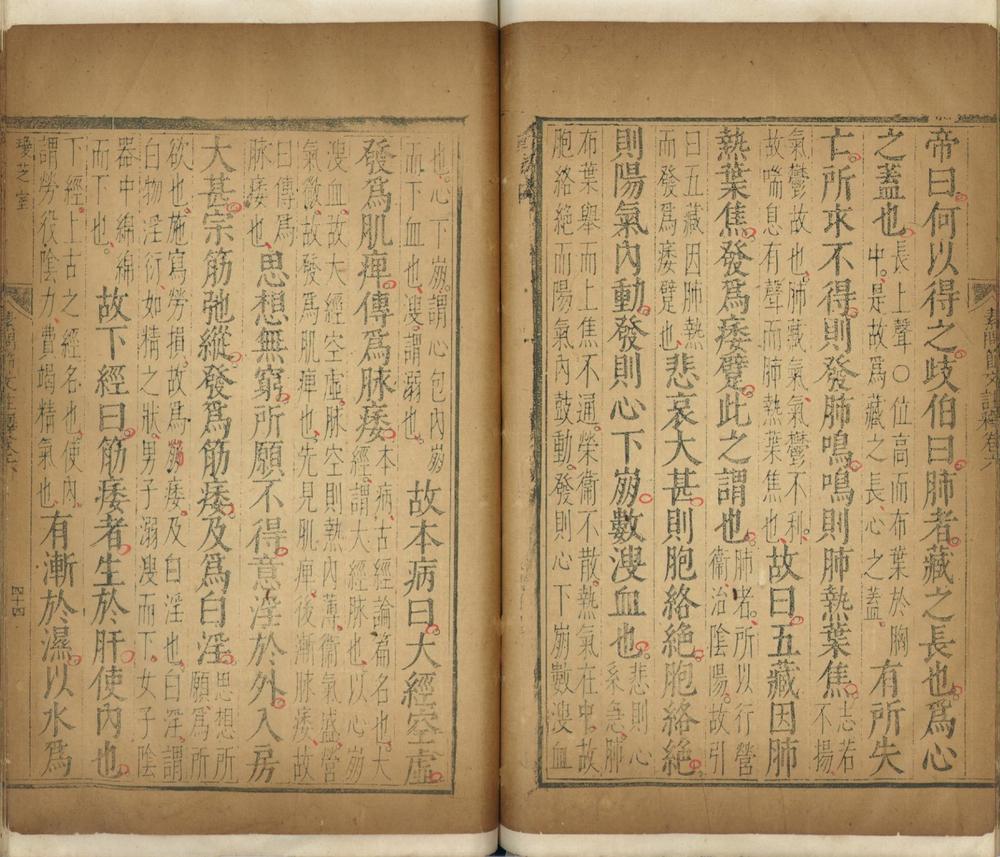 帝曰何以得之歧伯曰肺者藏之長也爲心
之蓋也
長上聲○位高而布葉於胸
中是故爲藏之長心之蓋
有所失
亡所求不得則發肺鳴鳴則肺熱葉焦
志若
不揚
氣鬱故也肺藏氣氣鬱不利
故喘息有聲而肺熱葉焦也
故曰五藏因肺
熱葉焦發爲痿躄此之謂也
肺者所以行營
衛治陰陽故引
曰五藏因肺熱
而發爲痿躄也
悲哀大甚則胞絡絕胞絡絕
則陽氣內動發則心下崩數溲血也
悲則心
系急肺
布葉舉而上焦不通榮衛不散熱氣在中故
胞絡絕而陽氣內鼓動發則心下崩數溲血
也心下崩謂心包內崩
而下血也溲謂溺也
故本病曰大經空虛
發爲肌痹傳爲脉痿
本病古經論篇名也大
經謂大經脉也以心崩
溲血故大經空虛脉空則熱內薄衛氣盛營
氣微故發爲肌痹也先見肌痹後漸脉痿故
曰傳爲
脉痿也
思想無窮所願不得意淫於外入房
大甚宗筋弛縱發爲筋痿及爲白淫
思想所
願爲所
欲也施寫勞損故爲筋痿及白淫也白淫謂
白物淫衍如精之狀男子溺溲而下女子陰
器中綿綿
而下也
故下經曰筋痿者生於肝使內也
下經上古之經名也使內
謂勞役陰力費竭精氣也
有漸於濕以水爲
四十四
芝室